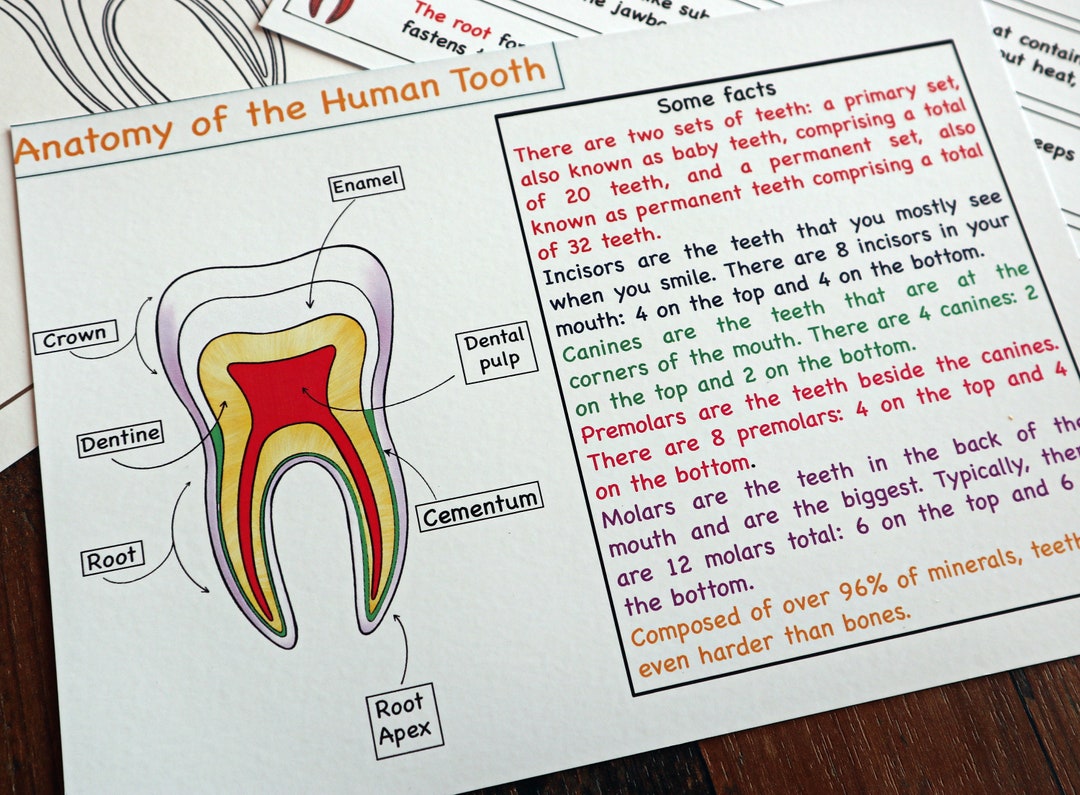 The root
fastens
jawb
at contain
ut heat,
eeps
Anatomy of the Human Tooth
Enamel
Crown
Dental
pulp
Dentine
Cementum
Root
Root
Apex
Some facts
There are two sets of teeth: a primary set,
also known as baby teeth, comprising a total
of 20 teeth, and a permanent set, also
known as permanent teeth comprising a total
of 32 teeth.
Incisors are the teeth that you mostly see
when you smile. There are 8 incisors in your
mouth: 4 on the top and 4 on the bottom.
Canines are the teeth that are at the
corners of the mouth. There are 4 canines: 2
on the top and 2 on the bottom.
Premolars are the teeth beside the canines.
There are 8 premolars: 4 on the top and 4
on the bottom.
Molars are the teeth in the back of the
mouth and are the biggest. Typically, ther
are 12 molars total: 6 on the top and 6
the bottom.
Composed of over 96% of minerals, teeth
even harder than bones.